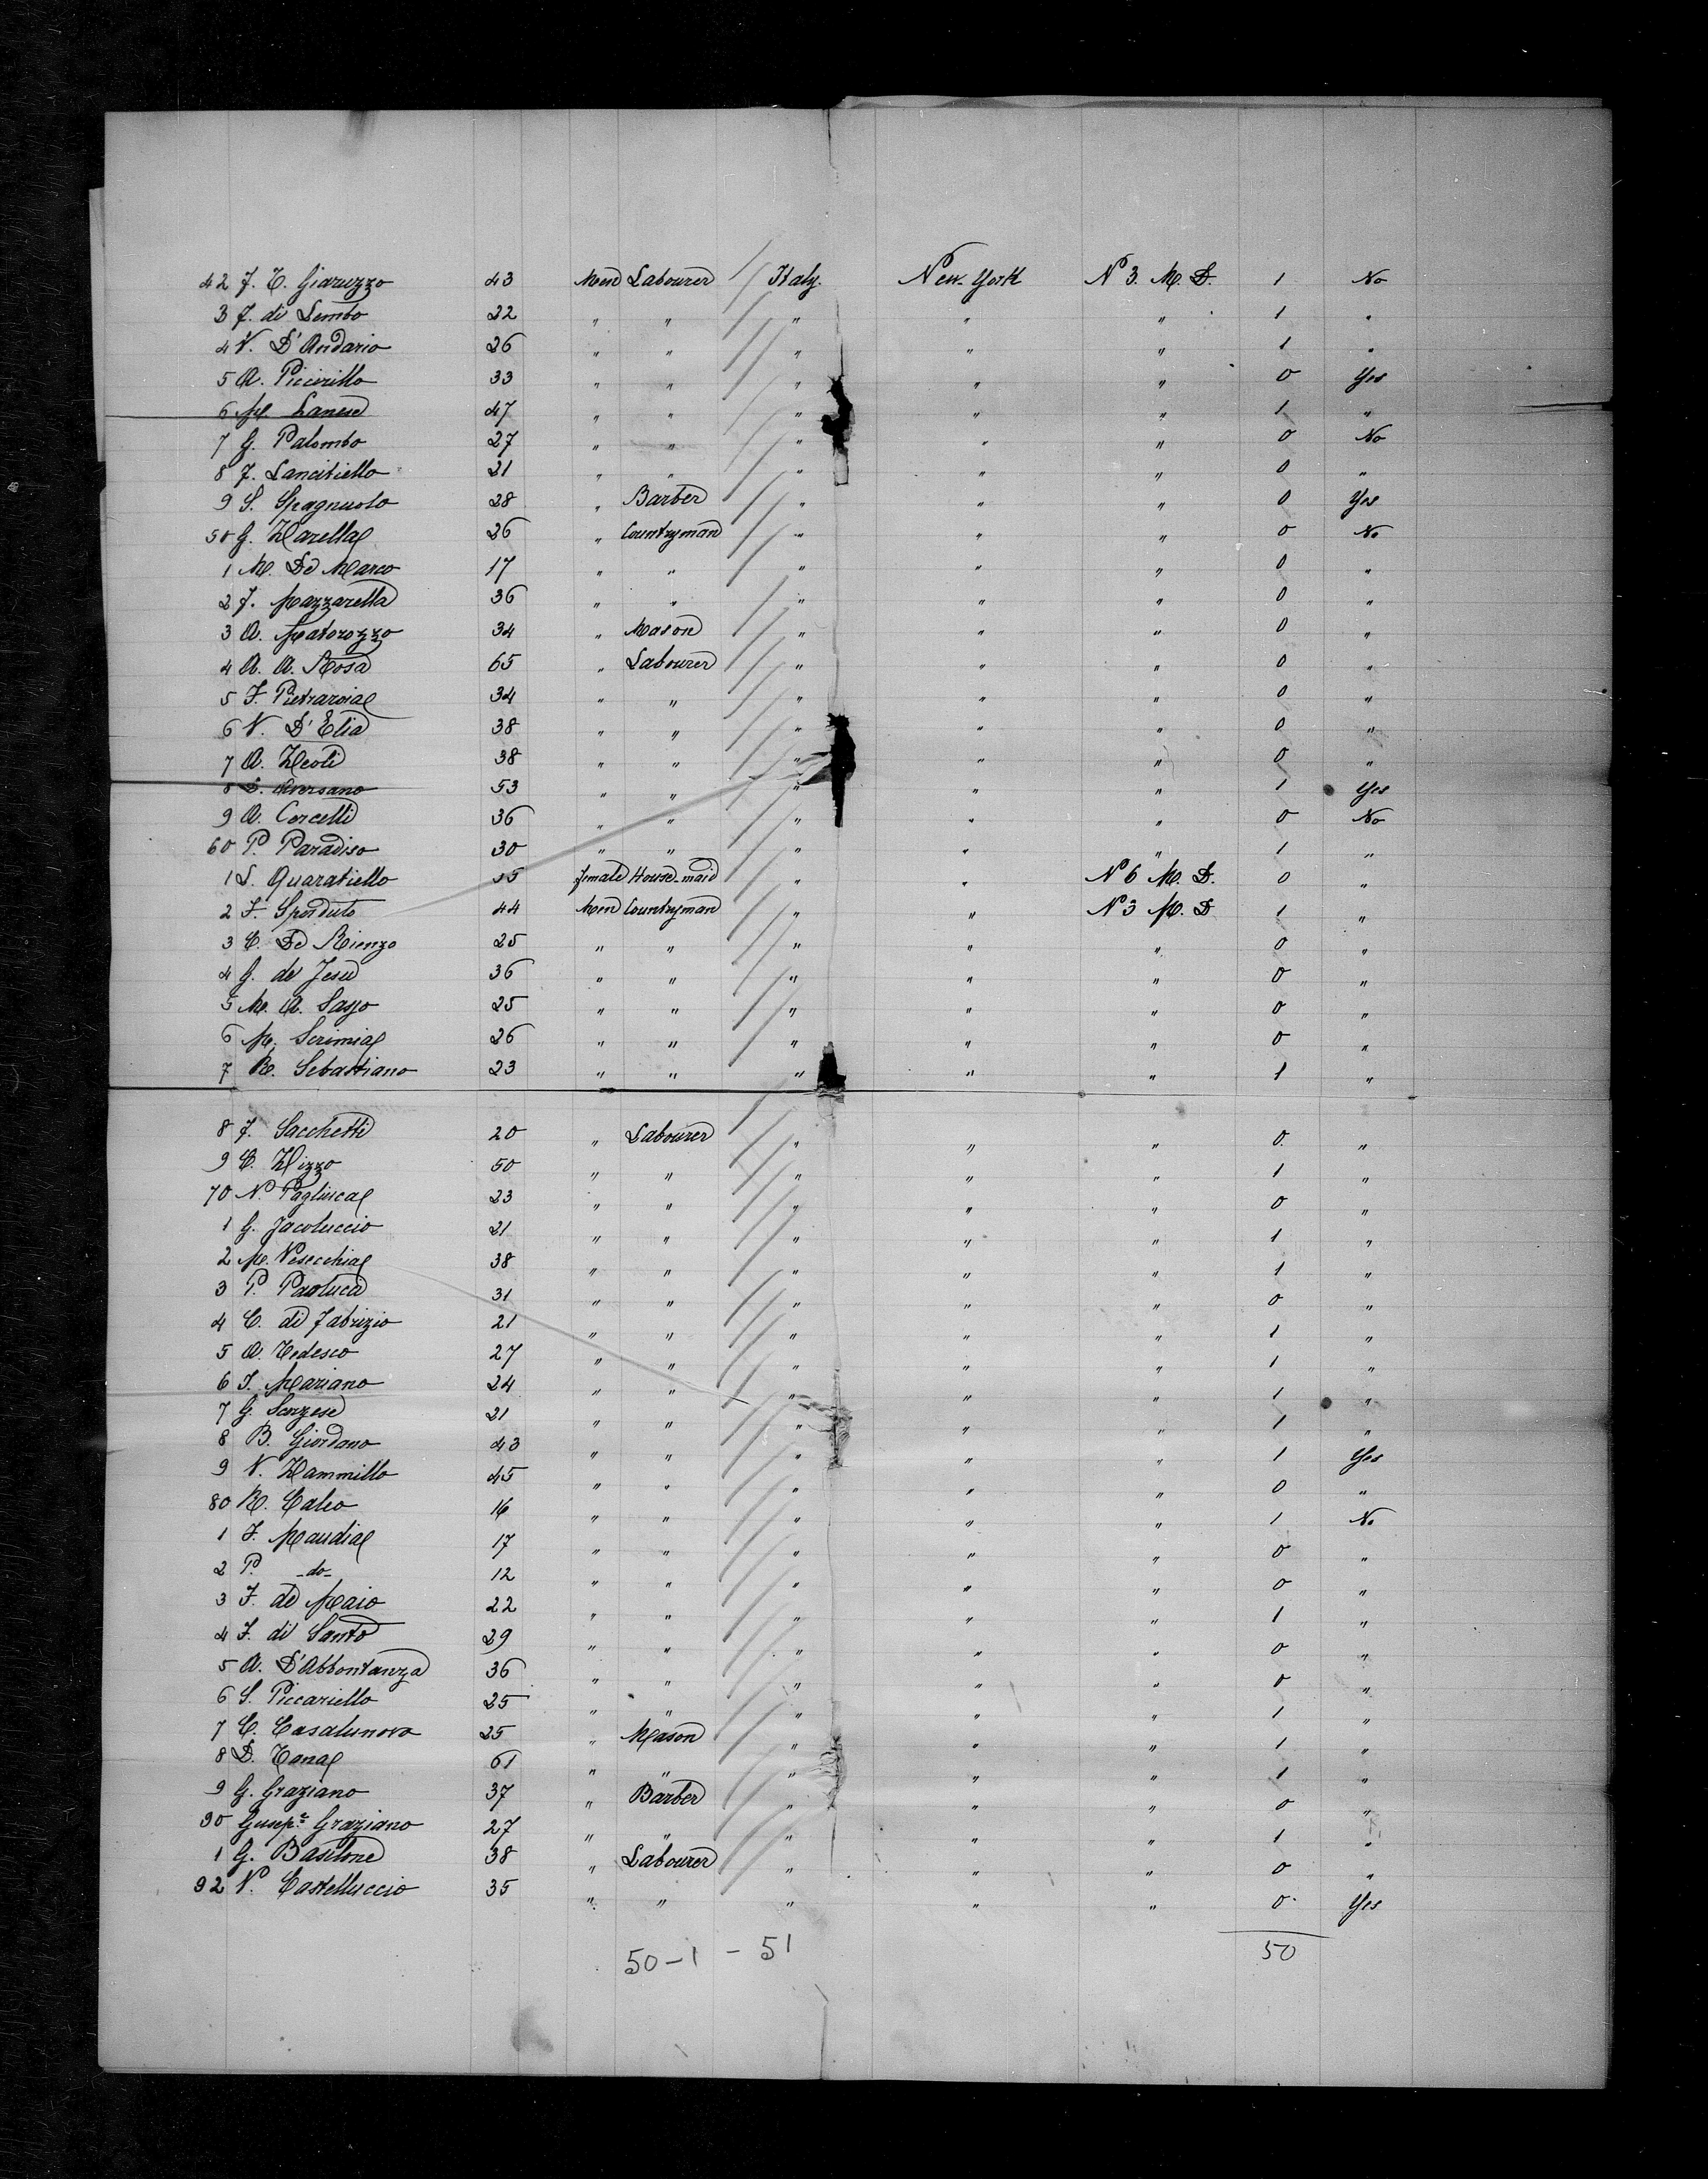 42 F. C. Giaruzzo 43 Men Labourer Italy. New-York No 3. M. D. 1 No
3 F. di Lembo 22 " " " " " 1 "
4 V. D'Andario 26 " " " " " 1 "
5 A. Piccirillo 33 " " " " " 0 Yes
6 M. Lanese 47 " " " " " 1 "
7 G. Palombo 27 " " " " " 0 No
8 F. Lancitiello 21 " " " " " 0 "
9 S. Spagnuolo 28 " Barber " " " 0 Yes
50 G. Zarella 26 " Countryman " " " 0 No
1 M. De Marco 17 " " " " " 0 "
2 F. Mazzarella 36 " " " " " 0 "
3 A. Matorozzo 34 " Mason " " " 0 "
4 A. A. Rosa 65 " Labourer " " " 0 "
5 F. Pietraroia 34 " " " " " 0 "
6 V. D'Elia 38 " " " " " 0 "
7 A. Zeoli 38 " " " " " 0 "
8 Aversano 53 " " " " " 1 Yes
9 A. Corcelli 36 " " " " " 0 No
60 P. Paradiso 30 " " " " " 1 "
1 L. Quaratiello 35 female House-maid " " No 6 M. D. 0 "
2 F. Sporduto 44 Men Countryman " " No 3 M. D 1 "
3 C. De Rienzo 25 " " " " " 0 "
4 G. de Jesu 36 " " " " " 0 "
5 M. A. Sasso 25 " " " " " 0 "
6 M. Scrimia 26 " " " " " 0 "
7 R. Sebastiano 23 " " " " " 1 "
8 F. Sacchetti 20 " Labourer " " " 0. "
9 C. Rizzo 50 " " " " " 1 "
70 N. Pagliuca 23 " " " " " 0 "
1 G. Jacoluccio 21 " " " " " 1 "
2 M. Vesecchia 38 " " " " " 1 "
3 P. Paoluca 31 " " " " " 0 "
4 C. di Fabrizio 21 " " " " " 1 "
5 A. Tedesco 27 " " " " " 1 "
6 F. Mariano 24 " " " " " 1 "
7 G. Scarzese 21 " " " " " 1 "
8 B. Giordano 43 " " " " " 1 Yes
9 V. Zammillo 45 " " " " " 0 "
80 R. Caleo 16 " " " " " 1 No
1 F. Maudia 17 " " " " " 0 "
2 P. -do- 12 " " " " " 0 "
3 F. de Maio 22 " " " " " 1 "
4 F. di Santo 29 " " " " " 0 "
5 A. D'Abbontanza 36 " " " " " 0 "
6 S. Piccariello 25 " " " " " 1 "
7 C. Casalunovo 25 " Mason " " " 1 "
8 D. Tona 61 " " " " " 1 "
9 G. Graziano 37 " Barber " " " 0 "
90 Gusepe Graziano 27 " " " " " 1 "
1 G. Basilone 38 " Labourer " " " 0 "
92 V. Castelluccio 35 " " " " " 0 Yes
50-1 - 51 50